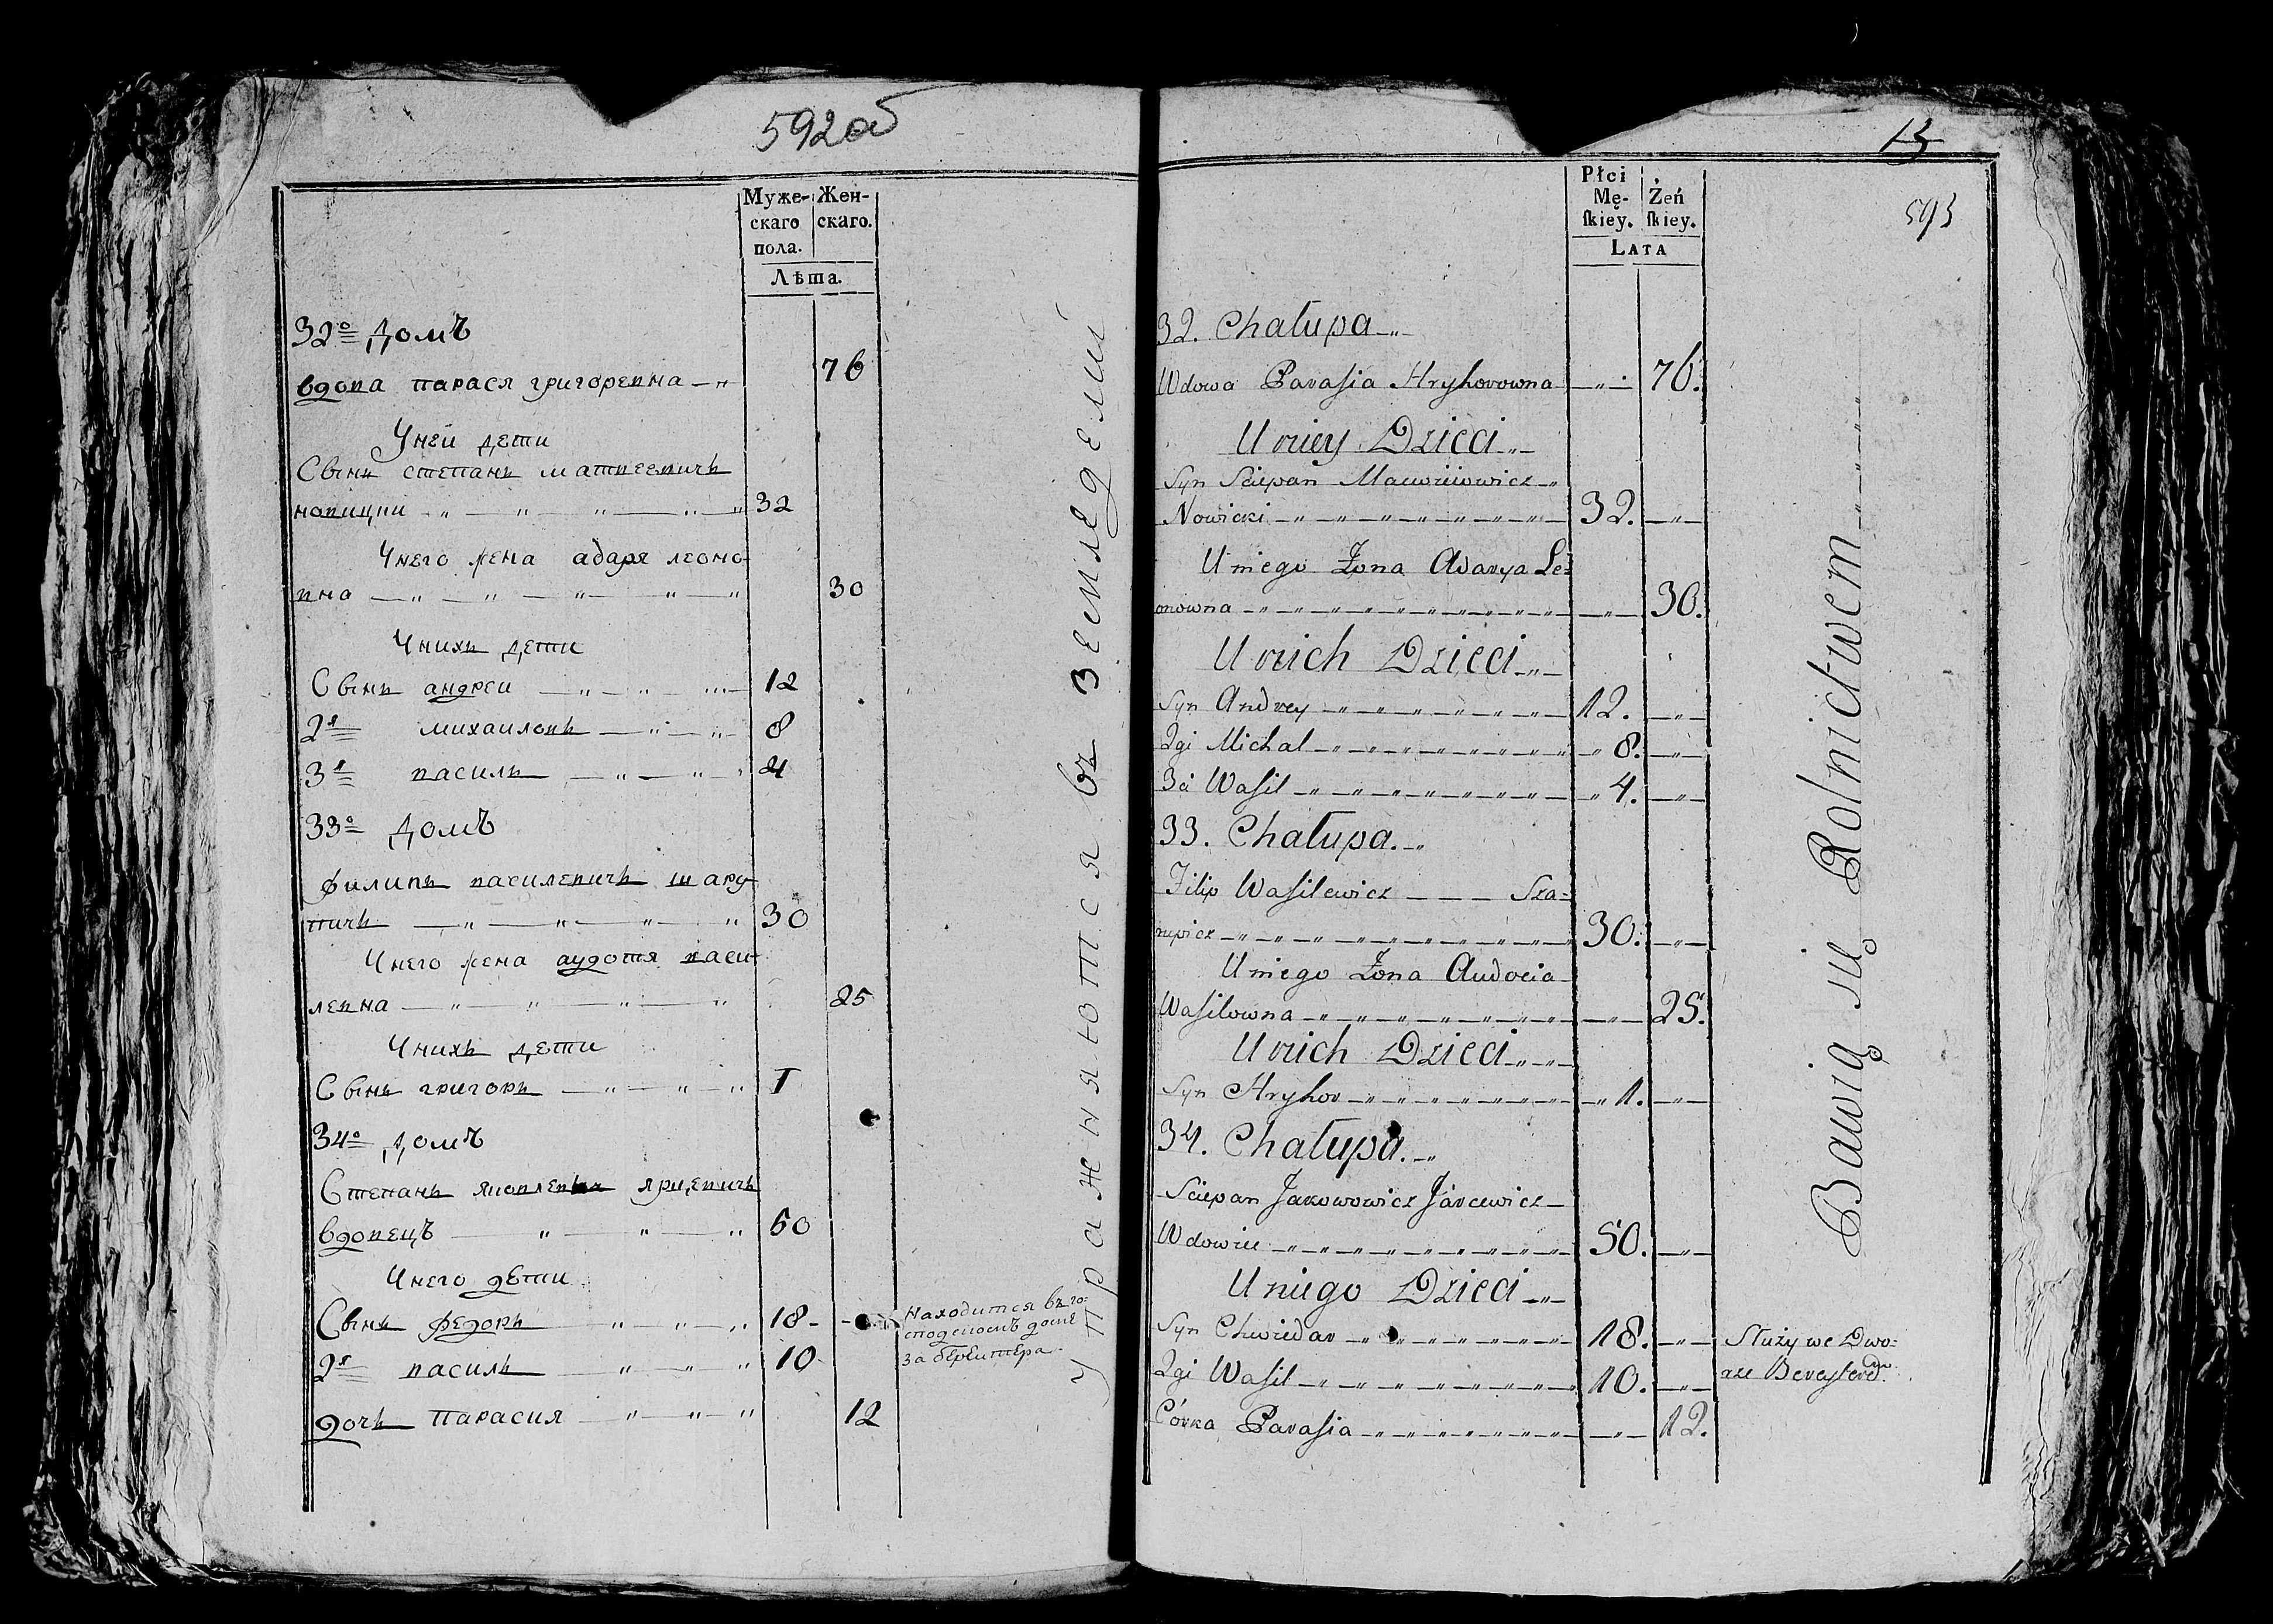 592об
Муже-
скаго
пола.
Жен-
скаго.
Лѣта.
32º домъ
вдова парася григоревна 76
Унеи дети
Сынъ степанъ матвеевичъ
новицки 32
Унего жена адаря леоно-
вна 30
Унихъ дети
Сынъ андреи 12
2й михаилонъ 8
3й василь 4
33º домъ
филипъ василевичъ шару-
пичъ 30
Унего жена аудотя васи-
левна 25
Унихъ дети
Сынъ григоръ I
34º домъ
Степанъ яковлевъ ярцевичъ
вдовецъ 50
Унего дѣти
Сынъ федоръ 18
Находится въ го-
сподскомъ доме
за береитера
2й василь 10
дочь парасия 12
Упражняются въ земледелии
13
593
Płci
Mę-
skiey.
Żeń
skiey.
LATA
32. Chałupa
Wdowa Parasia Hryhorowna 76.
U niey Dzieci
Syn Sciepan Macwiiowicz
Nowicki 32.
U niego Żona Adarya Le-
onowna 30.
U nich Dzieci
Syn Andrey 12.
2gi Michal 8.
3ci Wasil 4.
33. Chałupa.
Filip Wasilewicz Sza-
rupicz 30.
U niego Żona Audocia
Wasilowna 25.
U nich Dzieci
Syn Hryhor 1.
34. Chałupa.
Sciepan Jakowowicz Jarcewicz
Wdowiec 50.
U niego Dzieci
Syn Chwiedar 18.
Służy we Dwo-
rze
2gi Wasil 10.
Córka Parasia 12.
Bawią się Rolnictwem